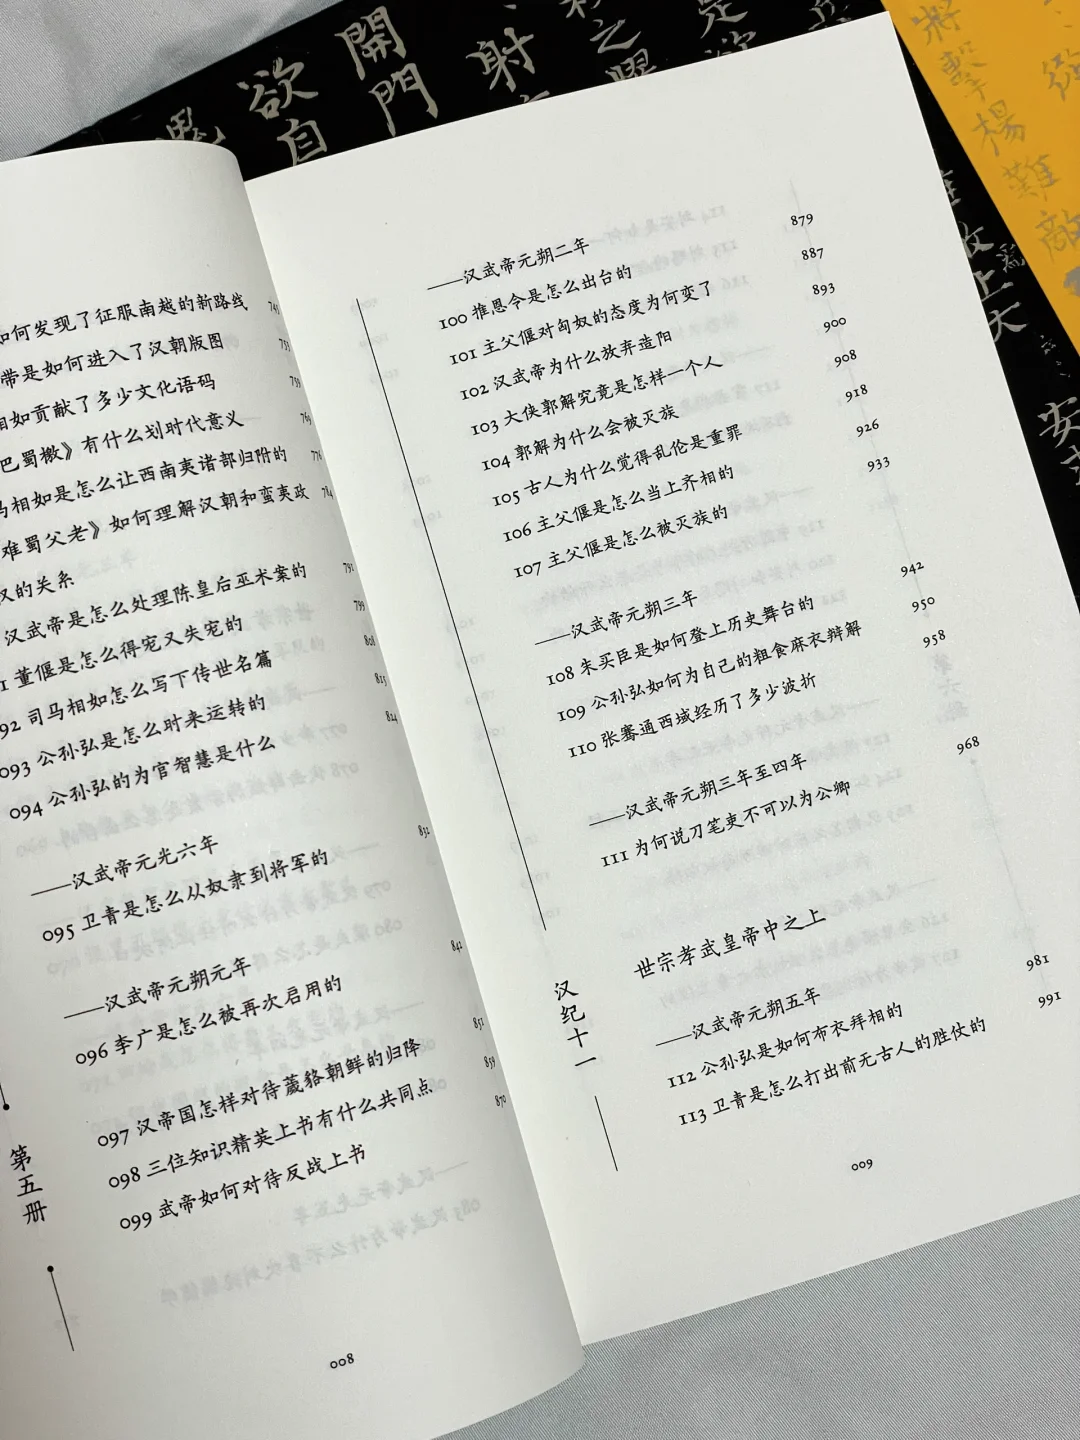 如何发现了征服南越的新路线 745
带是如何进入了汉朝版图
相如贡献了多少文化语码 759
巴蜀檄》有什么划时代意义 765
马相如是怎么让西南夷诸部归附的 776
难蜀父老》如何理解汉朝和蛮夷政 784
汉的关系
汉武帝是怎么处理陈皇后巫术案的 791
1 董偃是怎么得宠又失宠的 799
92 司马相如怎么写下传世名篇 808
093 公孙弘是怎么时来运转的 815
094 公孙弘的为官智慧是什么 824
——汉武帝元光六年
095 卫青是怎么从奴隶到将军的 832
——汉武帝元朔元年
096 李广是怎么被再次启用的 842
097 汉帝国怎样对待薉貉朝鲜的归降 851
098 三位知识精英上书有什么共同点 859
099 武帝如何对待反战上书 870
第五册
008
——汉武帝元朔二年
100 推恩令是怎么出台的 879
101 主父偃对匈奴的态度为何变了 887
102 汉武帝为什么放弃造阳 893
103 大侠郭解究竟是怎样一个人 900
104 郭解为什么会被灭族 908
105 古人为什么觉得乱伦是重罪 918
106 主父偃是怎么当上齐相的 926
107 主父偃是怎么被灭族的 933
——汉武帝元朔三年
108 朱买臣是如何登上历史舞台的 942
109 公孙弘如何为自己的粗食麻衣辩解 950
110 张骞通西域经历了多少波折 958
——汉武帝元朔三年至四年
111 为何说刀笔吏不可以为公卿 968
汉纪十一
世宗孝武皇帝中之上
——汉武帝元朔五年
112 公孙弘是如何布衣拜相的 981
113 卫青是怎么打出前无古人的胜仗的 991
009
開門
欲自
射
之
是欲
將擊楊難敵
敵上大
安